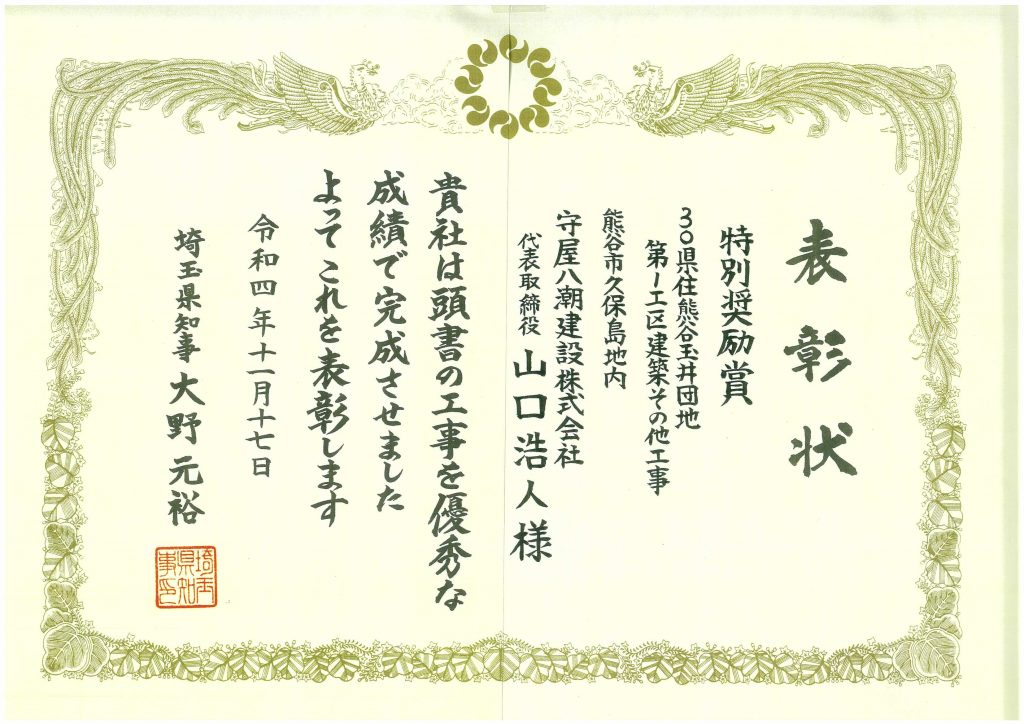 表彰状
特別奨励賞
30県住熊谷玉井団地
第1工区建築その他工事
熊谷市久保島地内
守屋八潮建設株式会社
代表取締役 山口浩人様
貴社は頭書の工事を優秀な
成績で完成させました
よってこれを表彰します
令和四年十一月十七日
埼玉県知事 大野元裕
埼玉県知事之印